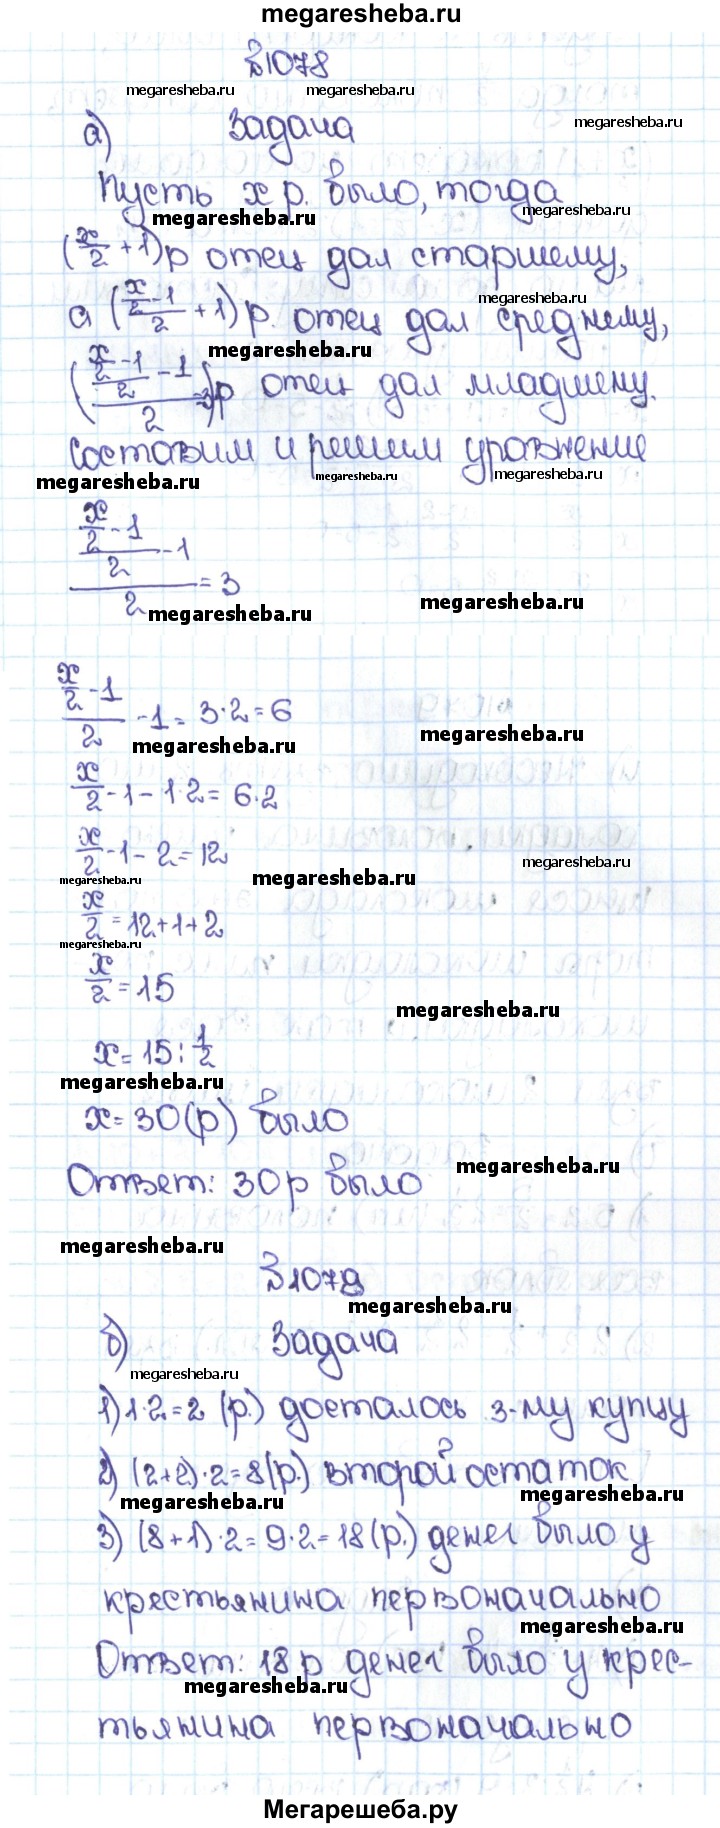 megaresheba.ru
№1078
megaresheba.ru megaresheba.ru
megaresheba.ru
а) Задача
Пусть x р. было, тогда
megaresheba.ru megaresheba.ru
(x/2 + 1) р отец дал старшему,
megaresheba.ru
а ((x/2 - 1)/2 + 1) р. отец дал среднему,
megaresheba.ru
(((x/2 - 1)/2 - 1)/2) р отец дал младшему.
Составим и решим уравнение
megaresheba.ru megaresheba.ru megaresheba.ru
((x/2 - 1)/2 - 1)/2 = 3
megaresheba.ru megaresheba.ru
(x/2 - 1)/2 - 1 = 3·2 = 6
megaresheba.ru megaresheba.ru
x/2 - 1 - 1·2 = 6·2
x/2 - 1 - 2 = 12
megaresheba.ru megaresheba.ru megaresheba.ru
x/2 = 12+1+2
megaresheba.ru
x/2 = 15
megaresheba.ru
x = 15 : 1/2
megaresheba.ru
x = 30 (р) было
Ответ: 30 р было
megaresheba.ru
megaresheba.ru
№1079
megaresheba.ru
б) Задача
megaresheba.ru
1) 1·2=2 (р.) досталось 3-му купцу
2) (2+2)·2=8 (р.) второй остаток
megaresheba.ru megaresheba.ru
3) (8+1)·2=9·2=18 (р.) денег было у
крестьянина первоначально
megaresheba.ru
Ответ: 18 р денег было у крес-
megaresheba.ru
тьянина первоначально
Мегарешеба.ру